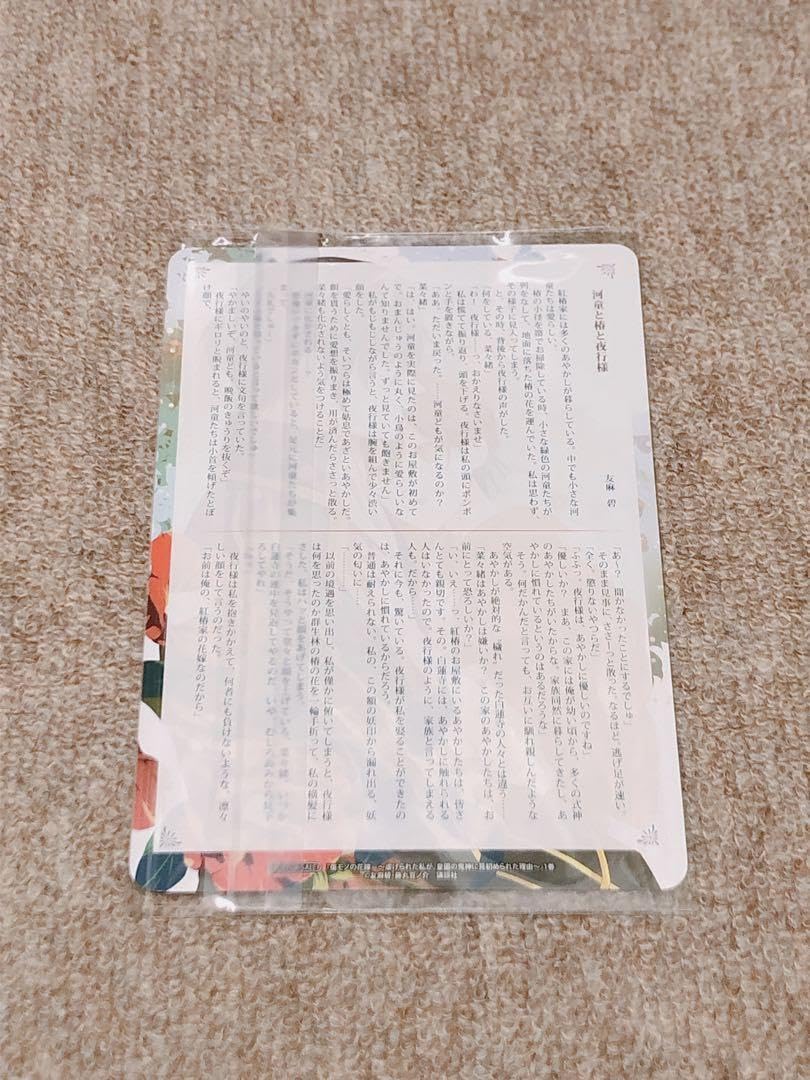 河童と椿と夜行様
友麻 碧
紅椿家には多くのあやかしが暮らしている。中でも小さな河
童たちは愛らしい。
椿の小径を箒でお掃除している時、小さな緑色の河童たちが
列をなして、地面に落ちた椿の花を運んでいた。私は思わず、
その様子に見入ってしまう。
と、その時、背後から夜行様の声がした。
「何をしている、菜々緒」
「わっ、夜行様っ。おかえりなさいませ」
私は慌てて振り返り、頭を下げる。夜行様は私の頭にポンポ
ンと手を置きながら、
「ああ、ただいま戻った。……河童どもが気になるのか?
菜々緒」
「は、はい。河童を実際に見たのは、このお屋敷が初めて
で。おまんじゅうのように丸く、小鳥のように愛らしいな
んて知りませんでした。ずっと見ていても飽きません」
私がもじもじしながら言うと、夜行様は腕を組んで少々渋い
顔をした。
「愛らしくとも、そいつらは極めて姑息であざといあやかしだ。
餌を貰うために愛想を振りまき、用が済んだらささっと散る。
菜々緒も化かされないよう気をつけることだ」
やいのやいのと、夜行様に文句を言っていた。
「やかましいぞ、河童ども。晩飯のきゅうりを抜くぞ」
夜行様にギロリと睨まれると、河童たちは小首を傾げたとぼ
け顔で、
「あ〜? 聞かなかったことにするでしゅ」
そのまま見事にささーっと散った。なるほど、逃げ足が速い。
「全く、懲りないやつらだ」
「ふふっ。夜行様は、あやかしに優しいのですね」
「優しいか? まあ、この家には俺が幼い頃から、多くの式神
のあやかしたちがいたからな。家族同然に暮らしてきたし、あ
やかしに慣れているというのはあるだろうな」
そう。何だかんだと言っても、お互いに馴れ親しんだような
空気がある。
あやかしが絶対的な〝穢れ〟だった白蓮寺の人々とは違う……
「菜々緒はあやかしは嫌いか? この家のあやかしたちは、お
前にとって恐ろしいか?」
「い、いえ……っ。紅椿のお屋敷にいるあやかしたちは、皆さ
んとても親切です。その。白蓮寺には、あやかしに触れられる
人はいなかったので、夜行様のように、家族と言ってしまえる
人も。だから……」
それに今も、驚いている。夜行様が私を娶ることができたの
は、あやかしに慣れているからだろう。
普通は耐えられない。私の、この額の妖印から漏れ出る、妖
気の匂いに……
「…………」
以前の境遇を思い出し、私が僅かに俯いてしまうと、夜行様
は何を思ったのか群生林の椿の花を一輪手折って、私の横髪に
さした。私はハッと顔をあげてしまう。
夜行様は私を抱きかかえて、何者にも負けないような、凛々
しい顔をして言うのだった。
「お前は俺の、紅椿家の花嫁なのだから」
『傷モノの花嫁 〜虐げられた私が、皇國の鬼神に見初められた理由〜』1巻
©友麻碧・藤丸豆ノ介 講談社